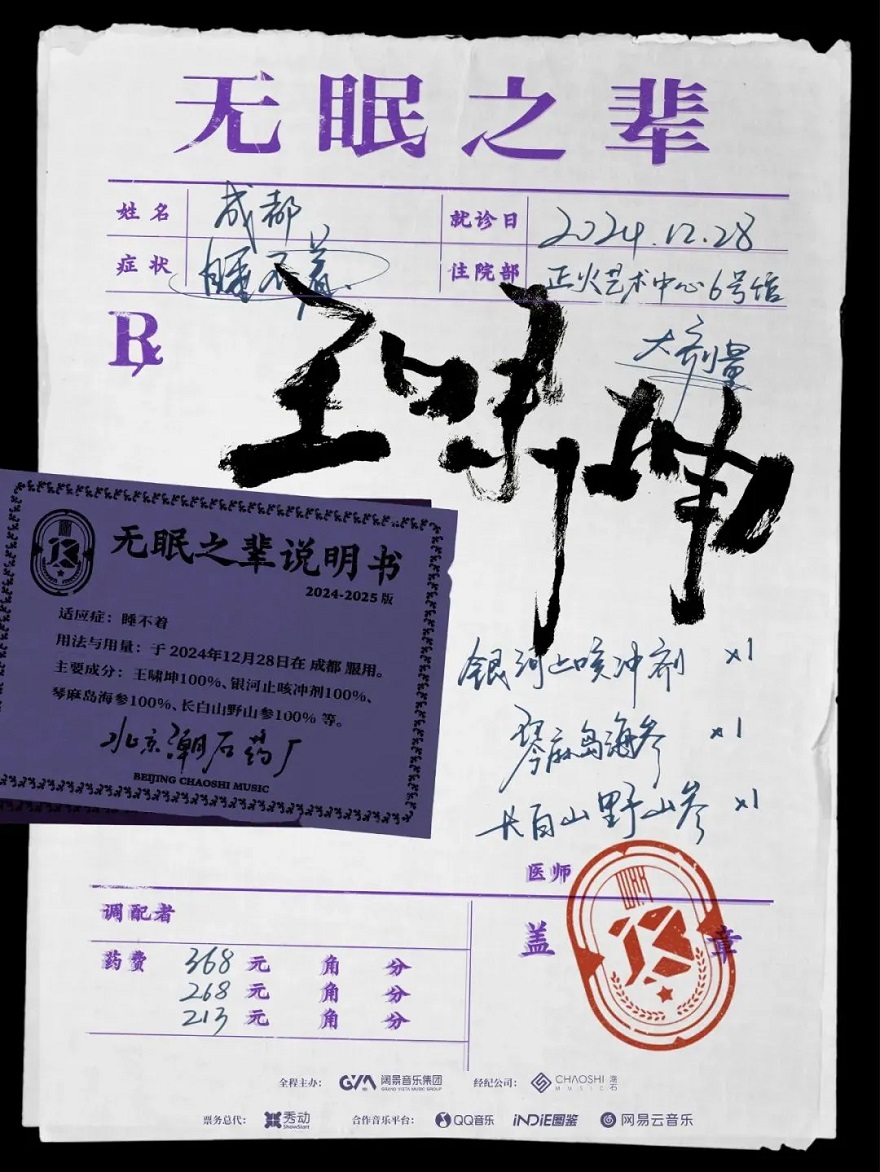 无眠之辈
姓名 成都 就诊日 2024.12.28
症状 睡不着 住院部 正火艺术中心6号馆
R
大剂量
王啸坤
无眠之辈说明书
2024-2025版
适应症：睡不着
用法与用量：于2024年12月28日在 成都 服用。
主要成分：王啸坤100%、银河止咳冲剂100%、
琴麻岛海参100%、长白山野山参100% 等。
北京潮石药厂
BEIJING CHAOSHI MUSIC
银河止咳冲剂 x1
琴麻岛海参 x1
长白山野山参 x1
医师
调配者
盖章
药费 368 元 角 分
268 元 角 分
213 元 角 分
全程主办： GVM 阔景音乐集团 GRAND VISTA MUSIC GROUP 经纪公司： CHAOSHI MUSIC 潮石
票务总代： 秀动 ShowStart 合作音乐平台： QQ音乐 iNDiE图鉴 网易云音乐